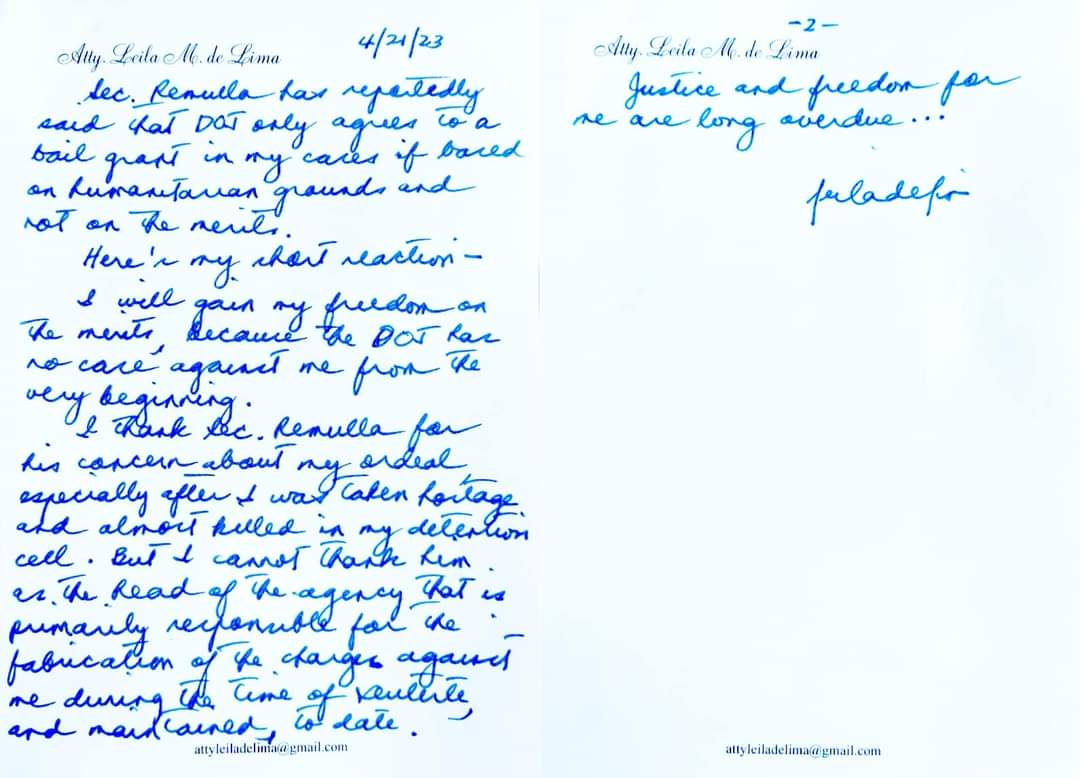 Atty. Leila M. de Lima
4/21/23
Sec. Remulla has reportedly
said that DOJ only agrees to a
bail grant in my cases if based
on humanitarian grounds and
not on the merits.
Here's my short reaction –
I will gain my freedom on
the merits, because the DOJ has
no case against me from the
very beginning.
I thank Sec. Remulla for
his concern about my ordeal,
especially after I was taken hostage
and almost killed in my detention
cell. But I cannot thank him
as the head of the agency that is
primarily responsible for the
fabrication of the charges against
me during the time of Duterte,
and maintained, to date.
attyleiladelima@gmail.com
-2-
Atty. Leila M. de Lima
Justice and freedom for
me are long overdue...
attyleiladelima@gmail.com